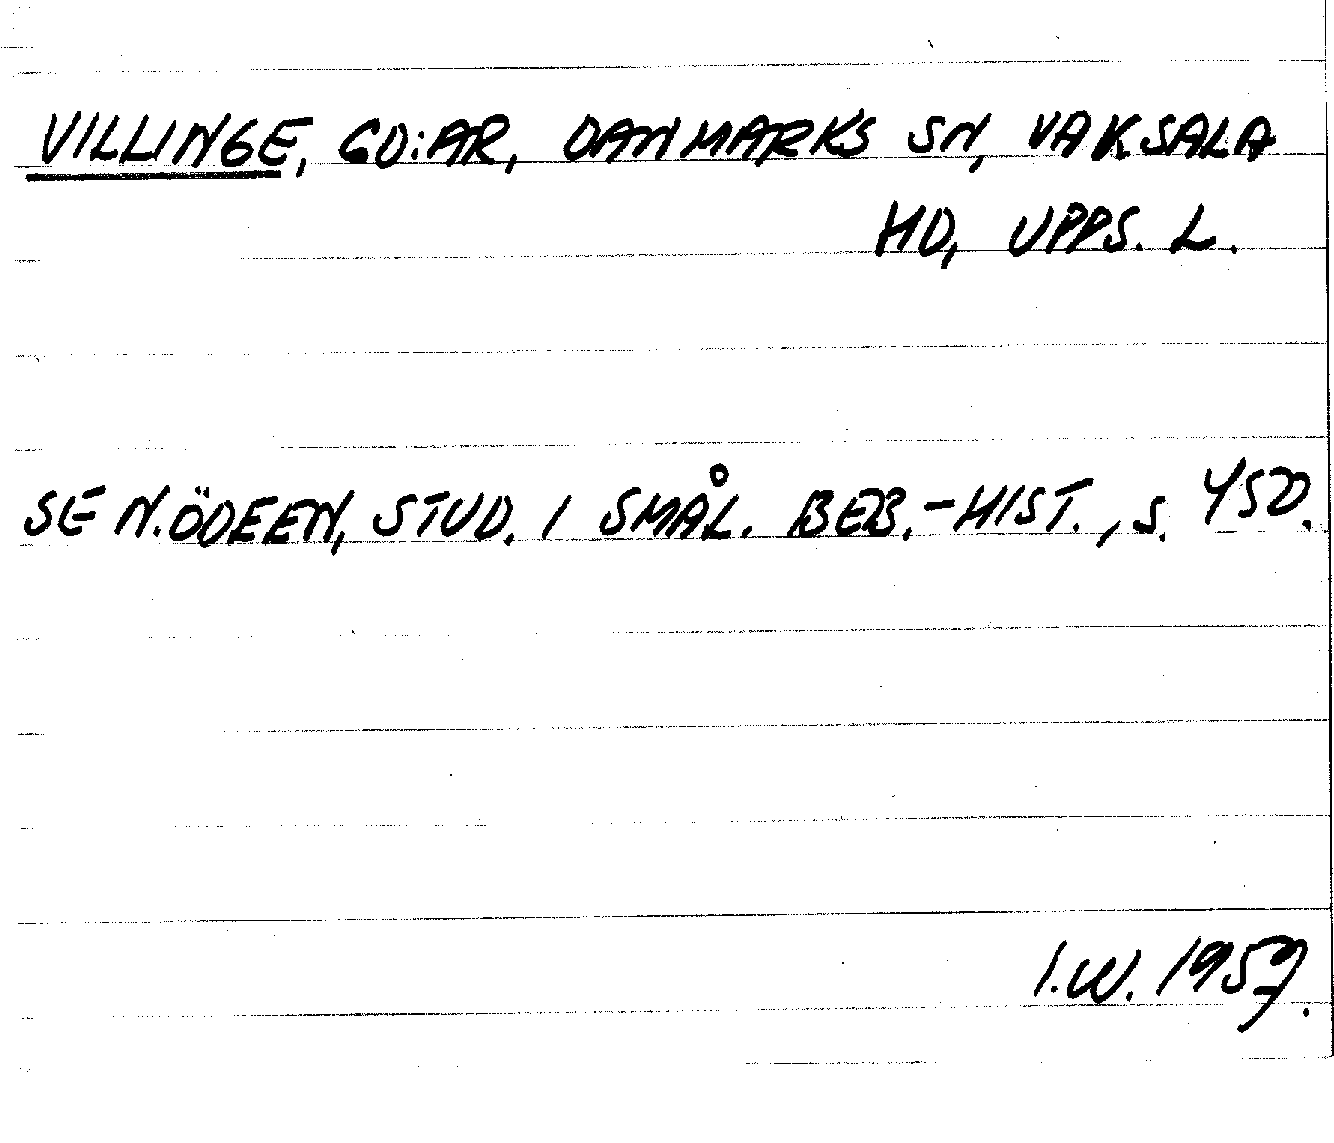 VILLINGE, GD:AR, DANMARKS SN, VAKSALA
HD, UPPS. L.
SE N. ÖDEEN, STUD. I SMÅL. BEB.-HIST., S. 450.
I.W. 1957.